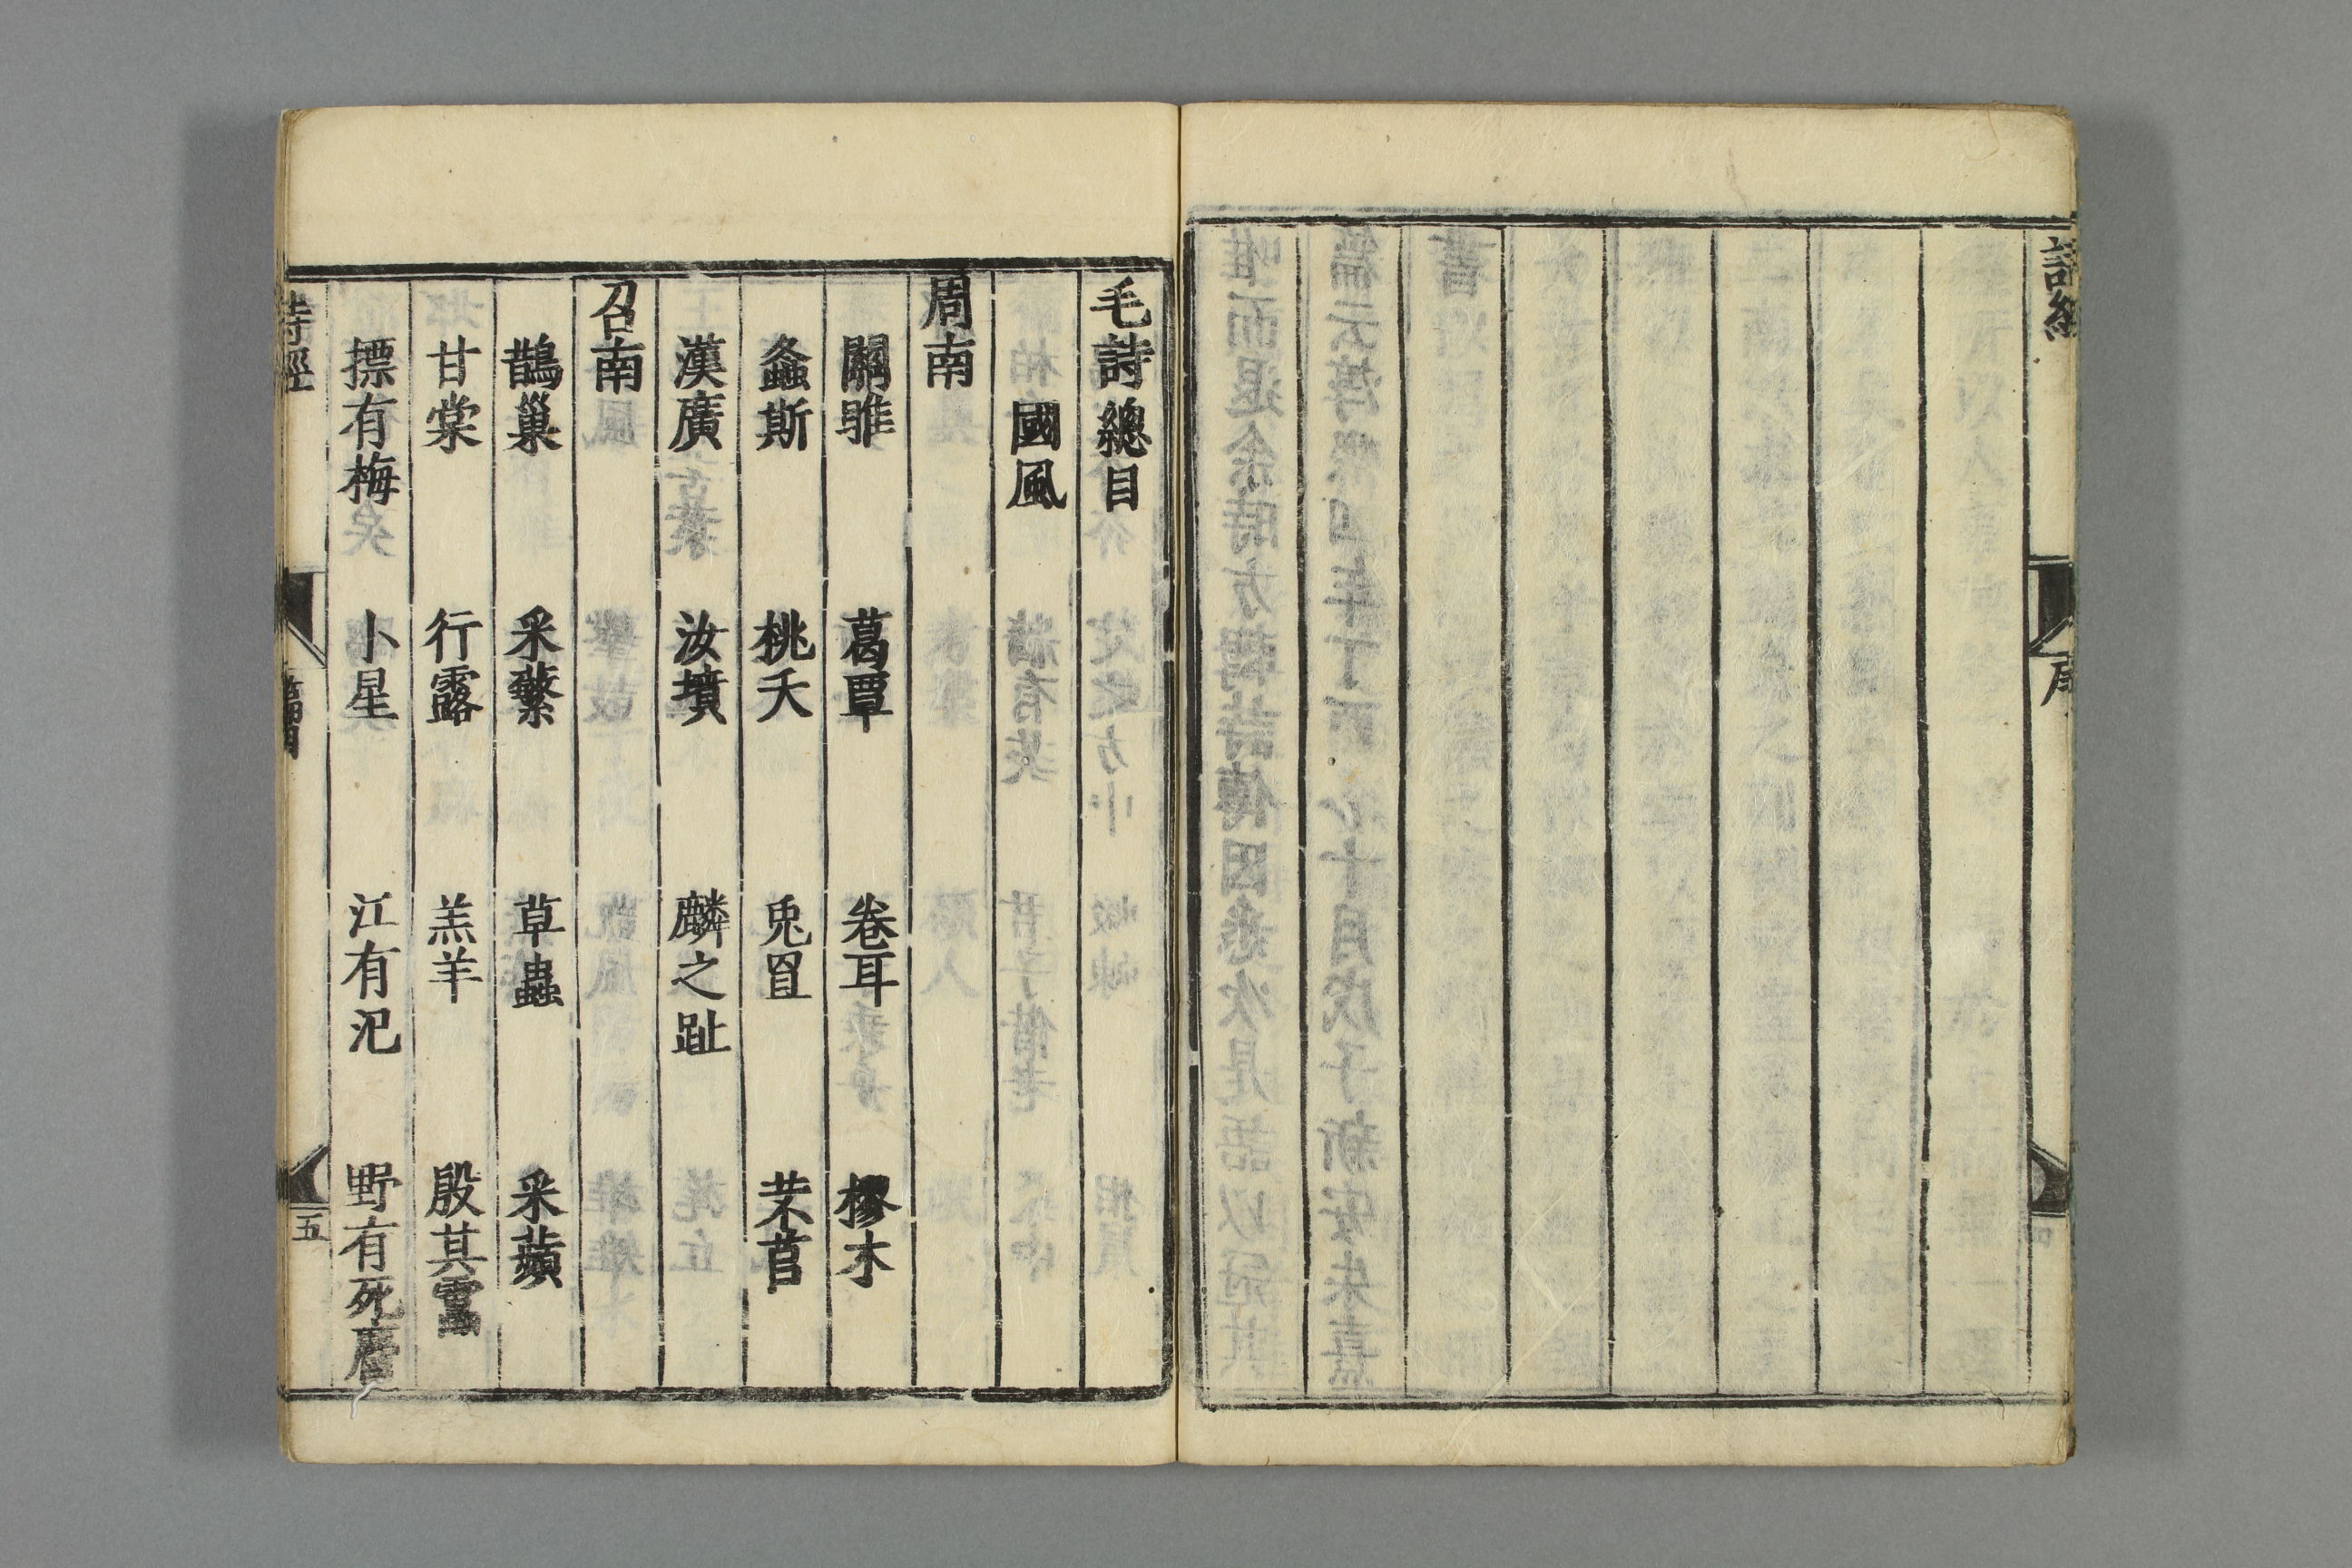 詩經
序
毛詩總目
國風
周南
關雎 葛覃 卷耳 樛木
螽斯 桃夭 兎罝 芣苢
漢廣 汝墳 麟之趾
召南
鵲巢 采蘩 草蟲 采蘋
甘棠 行露 羔羊 殷其靁
摽有梅 小星 江有汜 野有死麕
詩經
五